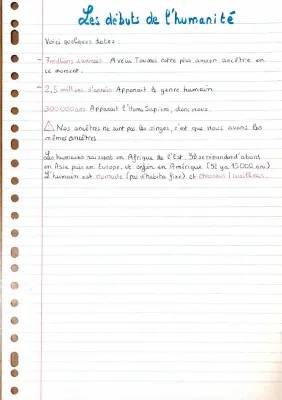 Les débuts de l'humanité
Voici quelques dates :
- 7 millions d'années : Avec Toumaï notre plus ancien ancêtre en
ce moment.
- 2,5 millions d'années Apparait le genre humain
300 000 ans Apparait l'Homo Sapiens, donc nous.
⚠ Nos ancêtres ne sont pas les singes, c'est que nous avons les
mêmes ancêtres
Les humains naissent en Afrique de l'Est. Ils se répandent d'abord
en Asie puis en Europe, et enfin en Amérique (Il y a 15 000 ans)
L'humain est nomade (pas d'habitat fixe) et chasseur / cueilleur.